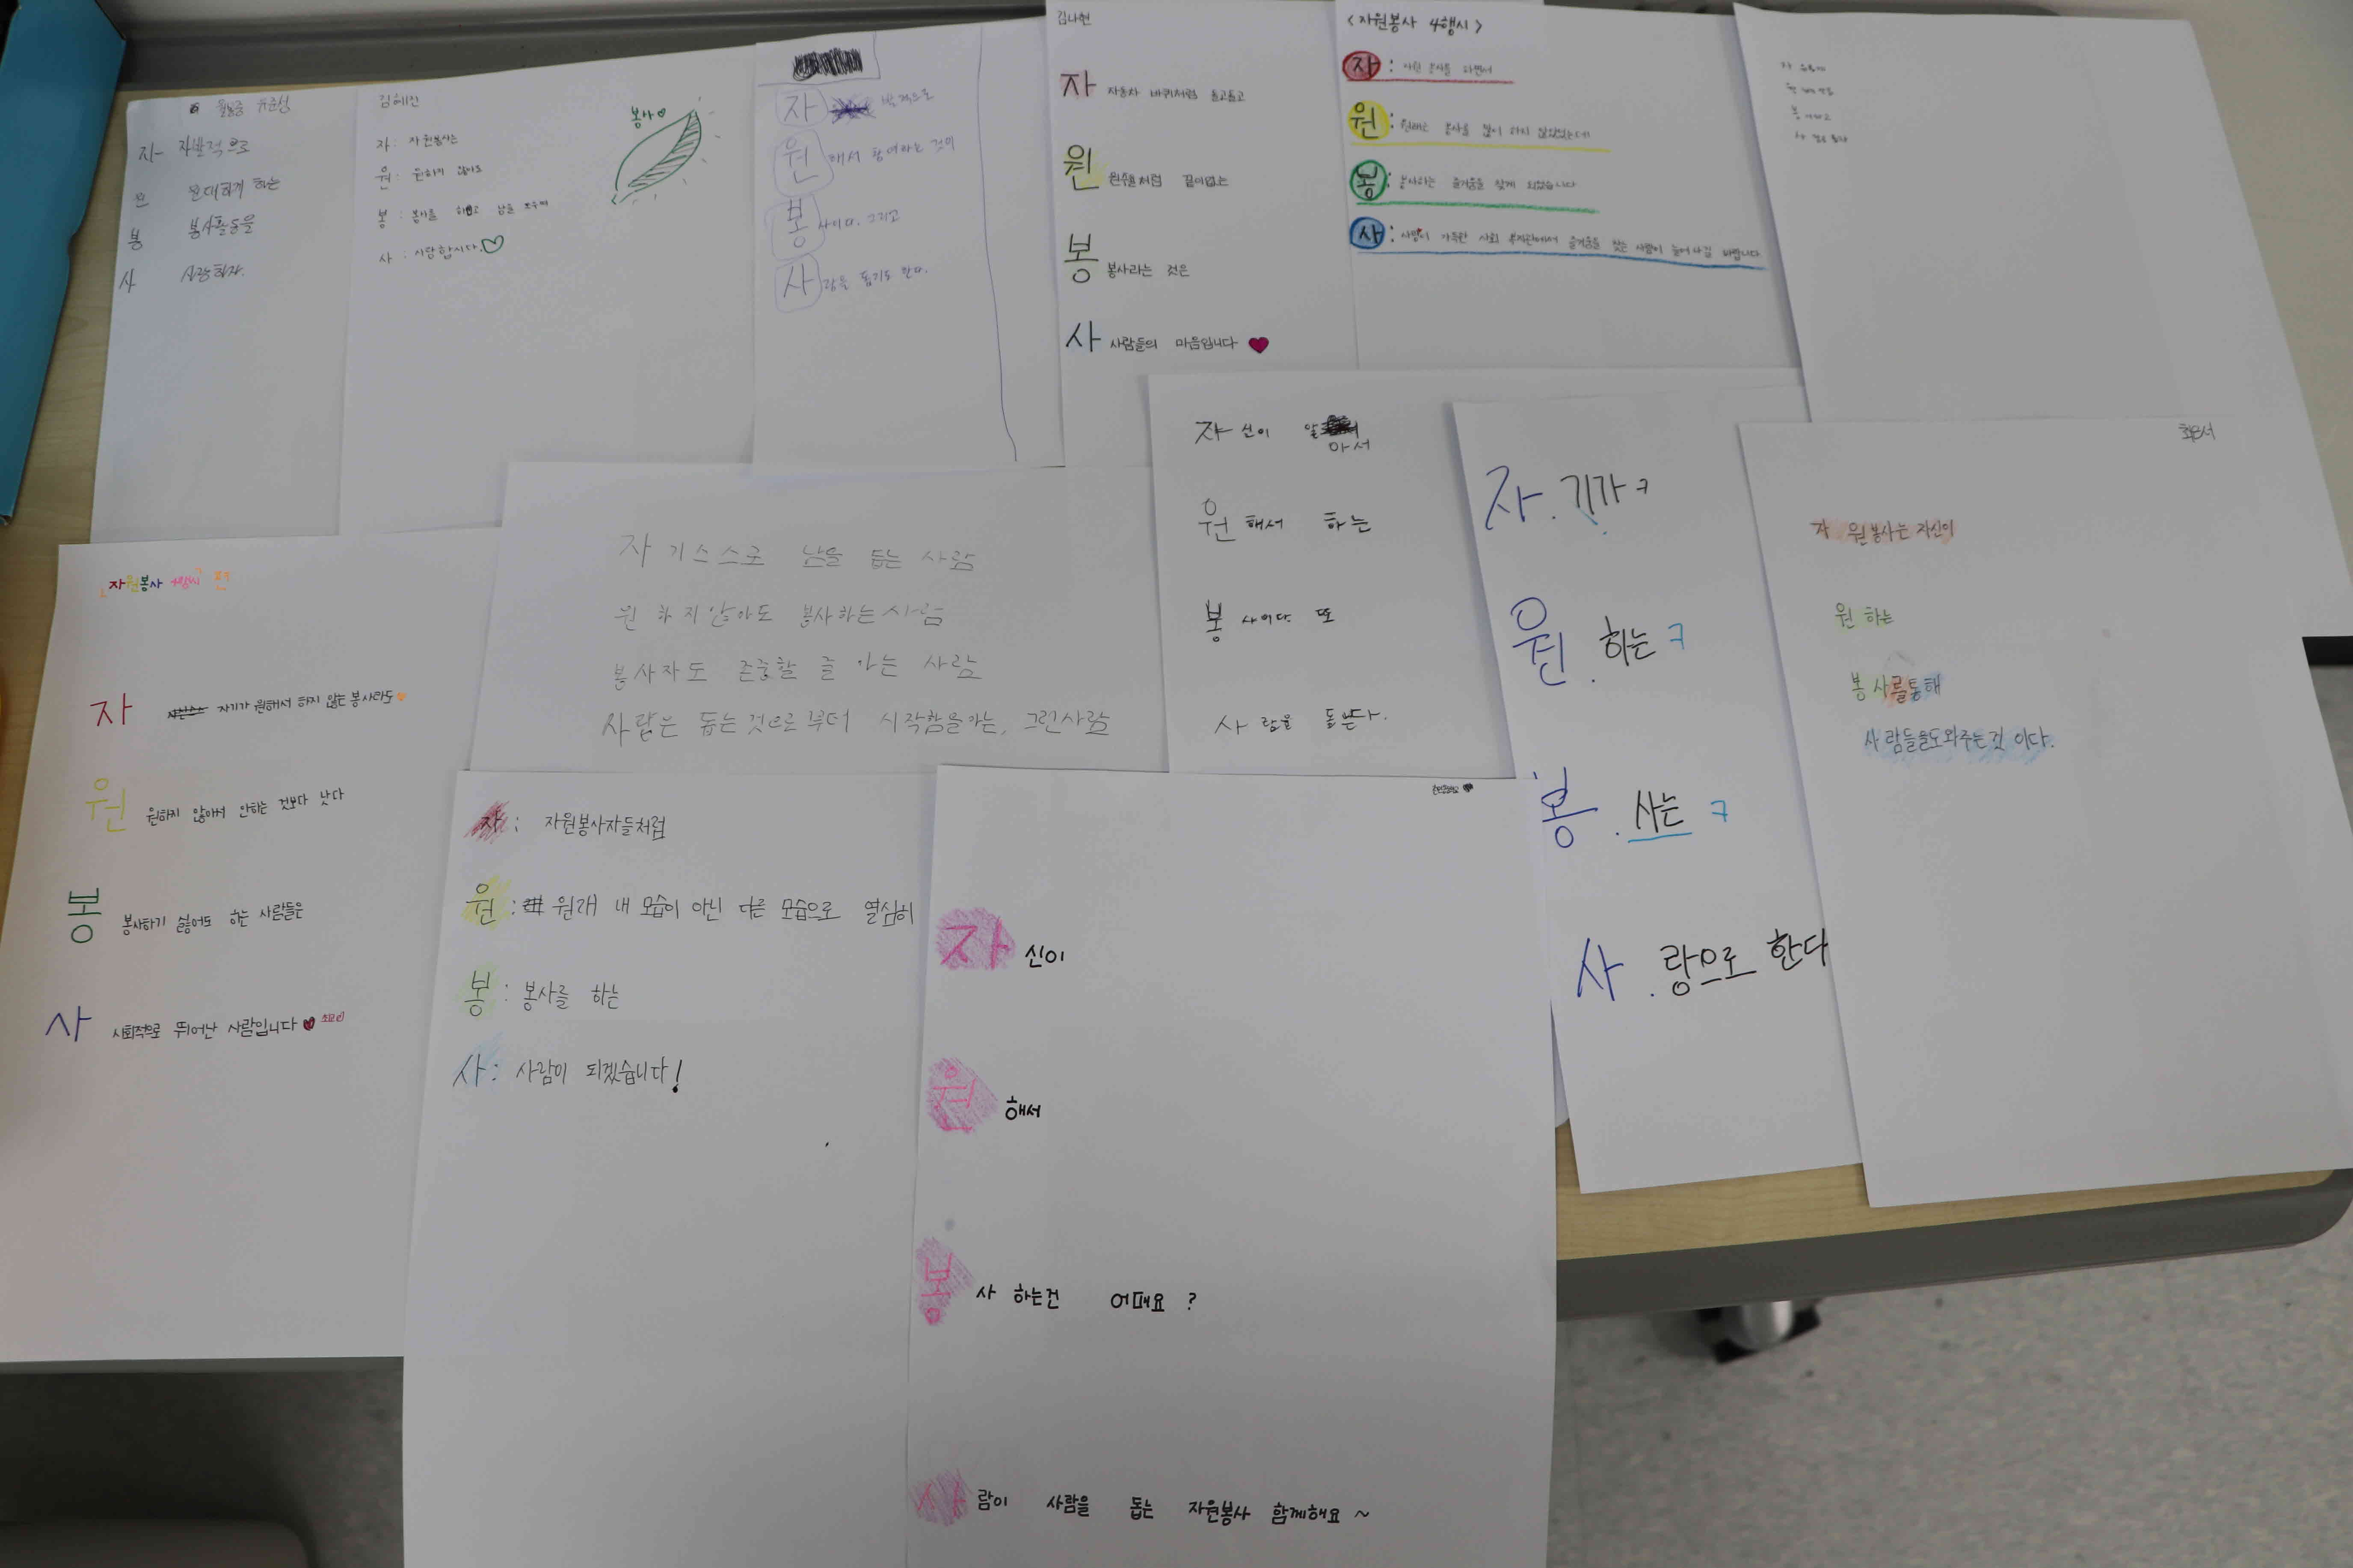 자- 자발적으로
원 원대하게 하는
봉 봉사활동을
사 사랑하자.
김혜진
봉사♡
자: 자원봉사는
원: 원하지 않아도
봉: 봉사를 하고 남을 도우며
사: 사랑합시다.♡
자 발적으로
원 해서 참여하는 것이
봉 사이다. 그리고
사 람을 돕기도 한다.
김나현
자 자동차 바퀴처럼 돌고돌고
원 원주율처럼 끝이없는
봉 봉사라는 것은
사 사람들의 마음입니다 ♥
<자원봉사 4행시>
자: 자원 봉사를 하면서
원: 원래는 봉사를 많이 하지 않았었는데
봉: 봉사하는 즐거움을 찾게 되었습니다.
사: 사랑이 가득한 사회 복지관에서 즐거움을 찾는 사람이 늘어나길 바랍니다.
자 신이 알아서
원 해서 하는
봉 사이다 또
사 람을 돕는다.
자. 기가 ㅋ
원. 하는 ㅋ
봉. 사는 ㅋ
사. 랑으로 한다
자 원봉사는 자신이
원 하는
봉 사를통해
사 람들을도와주는것 이다.
자 기스스로 남을 돕는 사람
원 하지않아도 봉사하는사람
봉 사자도 존중할 줄 아는 사람
사람은 돕는것으로부터 시작함을아는, 그런사람
자원봉사
자 자기가 원해서 하지 않는 봉사라도
원 원하지 않아서 안하는 것보다 낫다
봉 봉사하기 싫어도 하는 사람들은
사 사회적으로 뛰어난 사람입니다 ♥
자: 자원봉사자들처럼
원: 원래 내 모습이 아닌 다른 모습으로 열심히
봉: 봉사를 하는
사: 사람이 되겠습니다!
자 신이
원 해서
봉 사 하는건 어때요?
사 람이 사람을 돕는 자원봉사 함께해요~